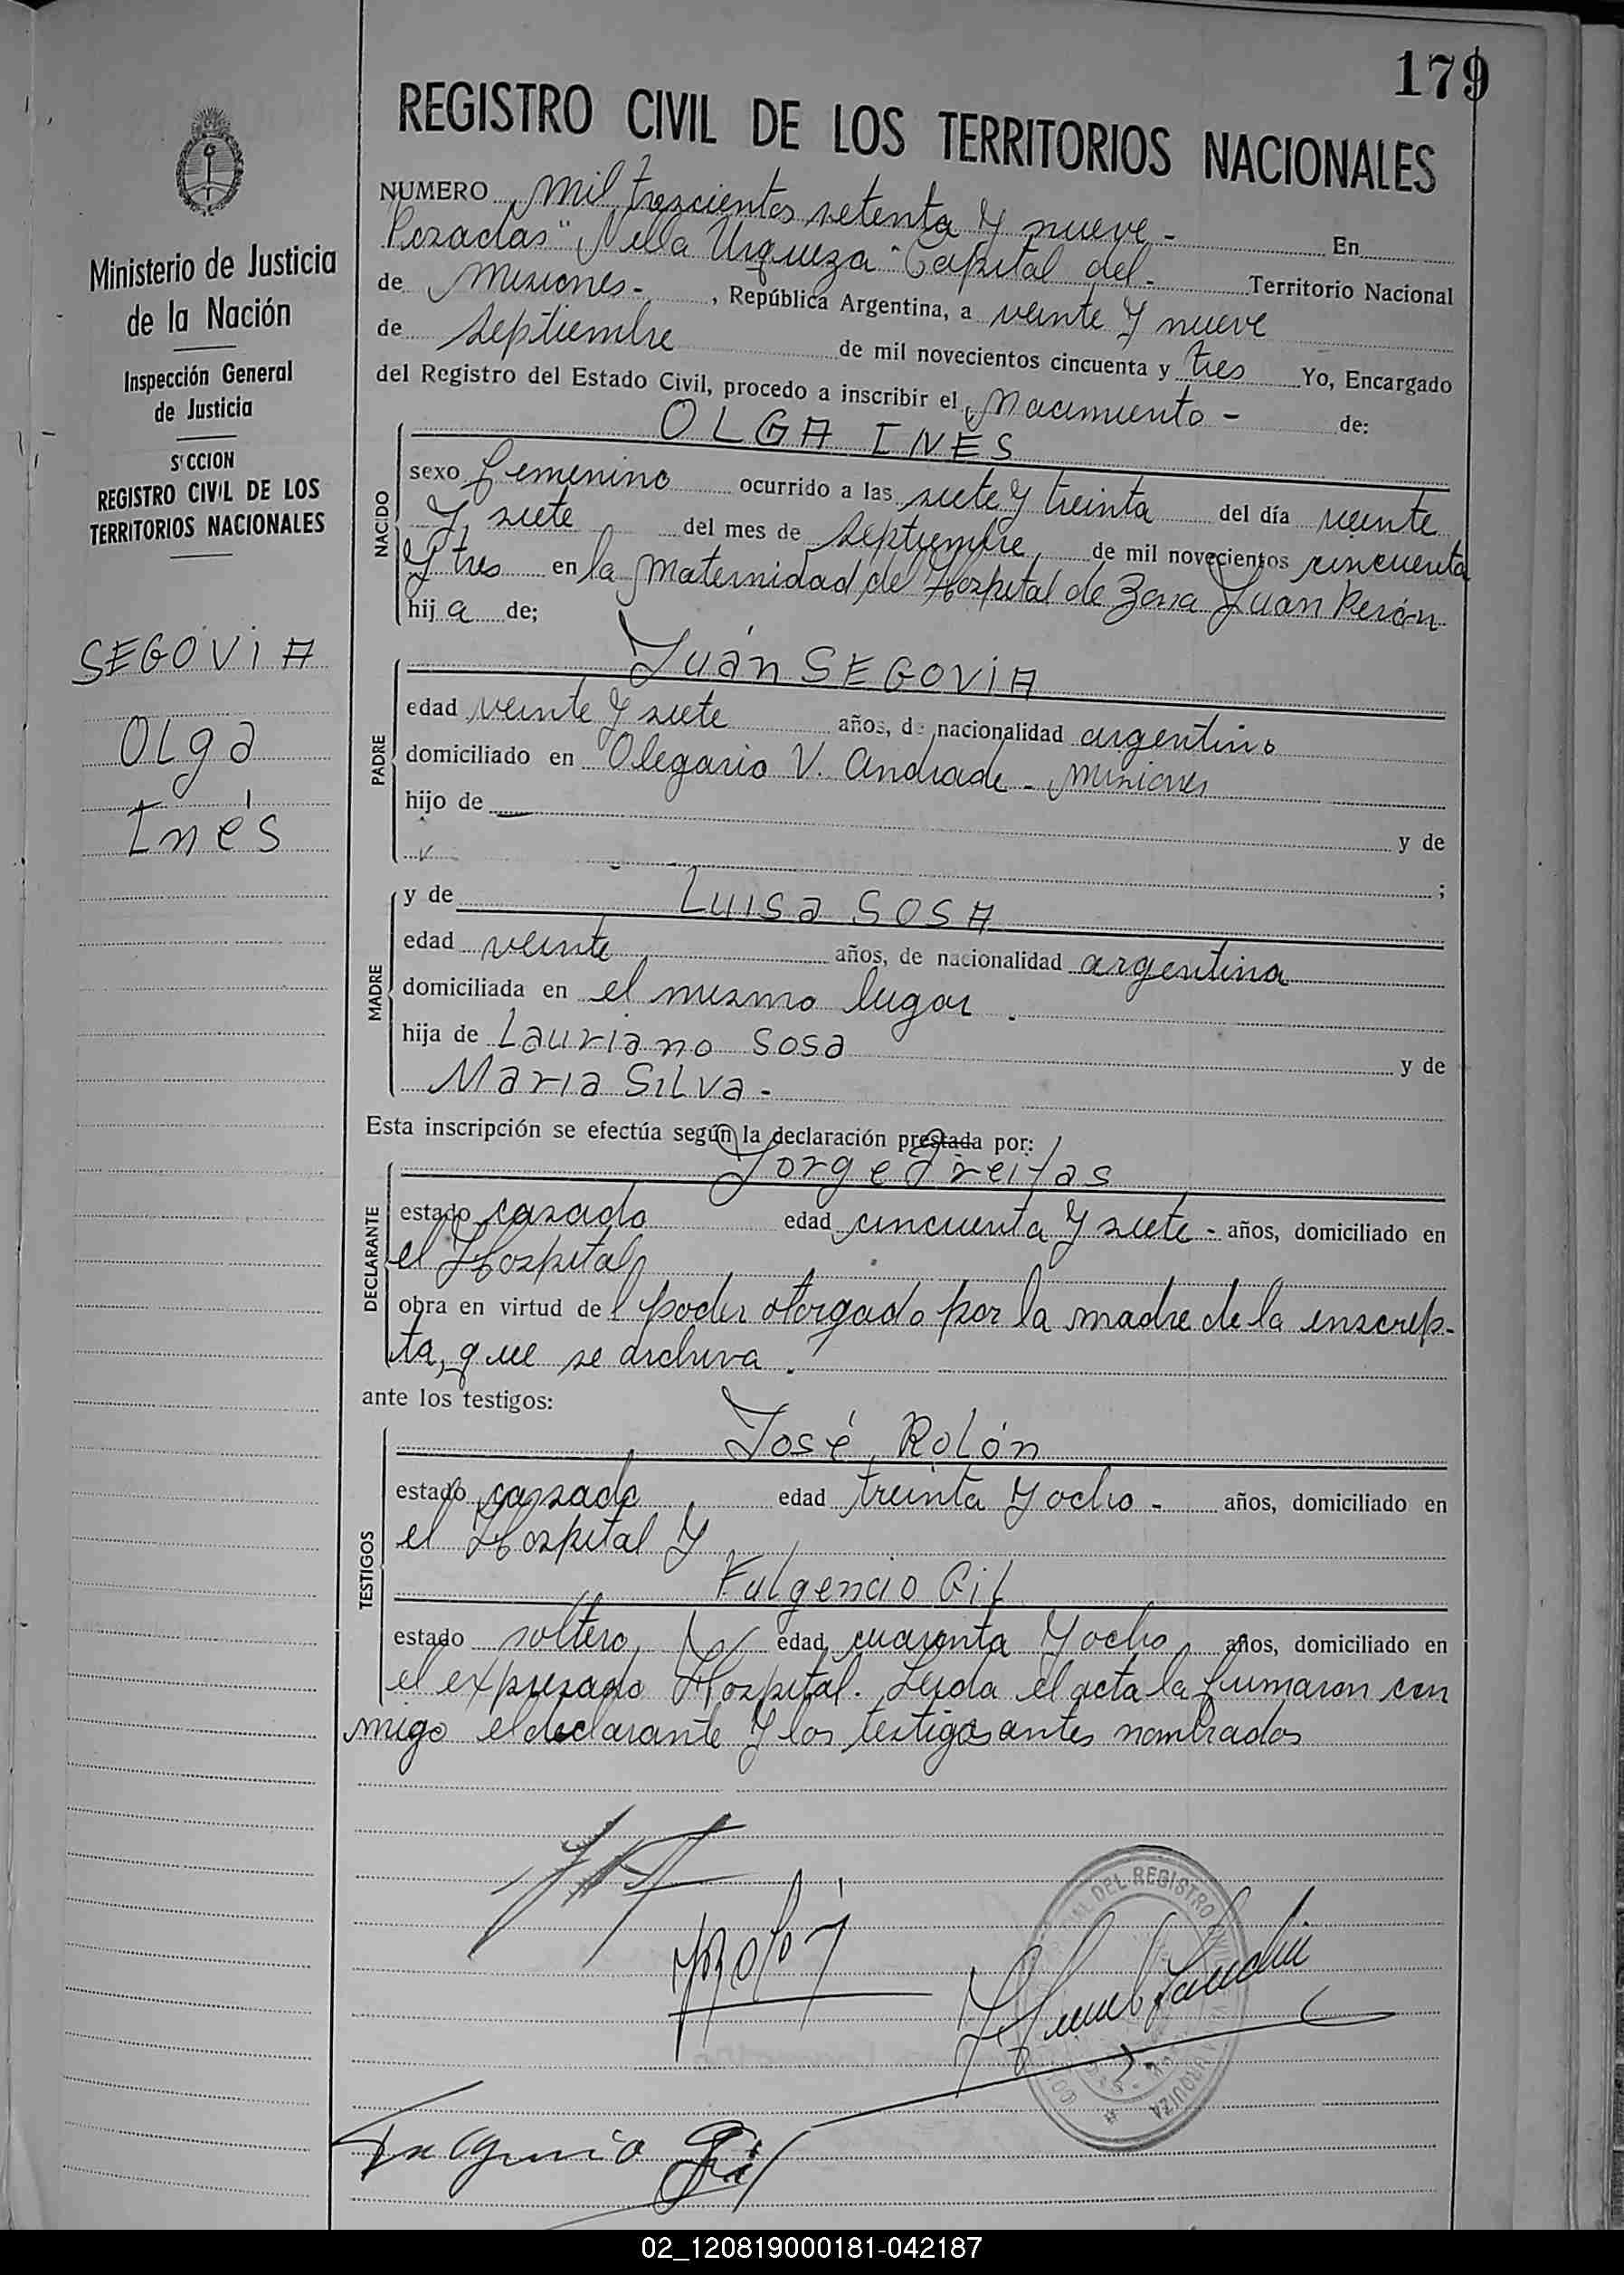 179
REGISTRO CIVIL DE LOS TERRITORIOS NACIONALES
Ministerio de Justicia
de la Nación
Inspección General
de Justicia
S'CCION
REGISTRO CIVIL DE LOS
TERRITORIOS NACIONALES
SEGOVIA
Olga
Inés
NUMERO mil trescientos setenta y nueve - En
Posadas "Villa Urquiza" Capital del - Territorio Nacional
de Misiones - , República Argentina, a veinte y nueve
de septiembre de mil novecientos cincuenta y tres Yo, Encargado
del Registro del Estado Civil, procedo a inscribir el Nacimiento - de:
OLGA INÉS
NACIDO
sexo femenino ocurrido a las siete y treinta del día veinte
y siete del mes de septiembre de mil novecientos cincuenta
y tres en la Maternidad del Hospital de Zona Juan Perón
hija de;
Juán SEGOVIA
PADRE
edad veinte y siete años, de nacionalidad argentino
domiciliado en Olegario V. Andrade - Misiones
hijo de — y de
;
MADRE
y de Luisa SOSA
edad veinte años, de nacionalidad argentina
domiciliada en el mismo lugar.
hija de Lauriano Sosa y de
Maria Silva -
Esta inscripción se efectúa según la declaración prestada por:
Jorge Freitas
DECLARANTE
estado casado edad cincuenta y siete - años, domiciliado en
el Hospital
obra en virtud del poder otorgado por la madre de la inscrip-
ta, que se archiva.
ante los testigos:
José Rolón
TESTIGOS
estado casado, edad treinta y ocho - años, domiciliado en
el Hospital y
Fulgencio Gil
estado soltero, edad cuarenta y ocho, años, domiciliado en
el expresado Hospital. Leida el acta la firmaron con
migo el declarante y los testigos antes nombrados
DEL REGISTRO
URQUIZA
Fulgencio Gil
02_120819000181-042187